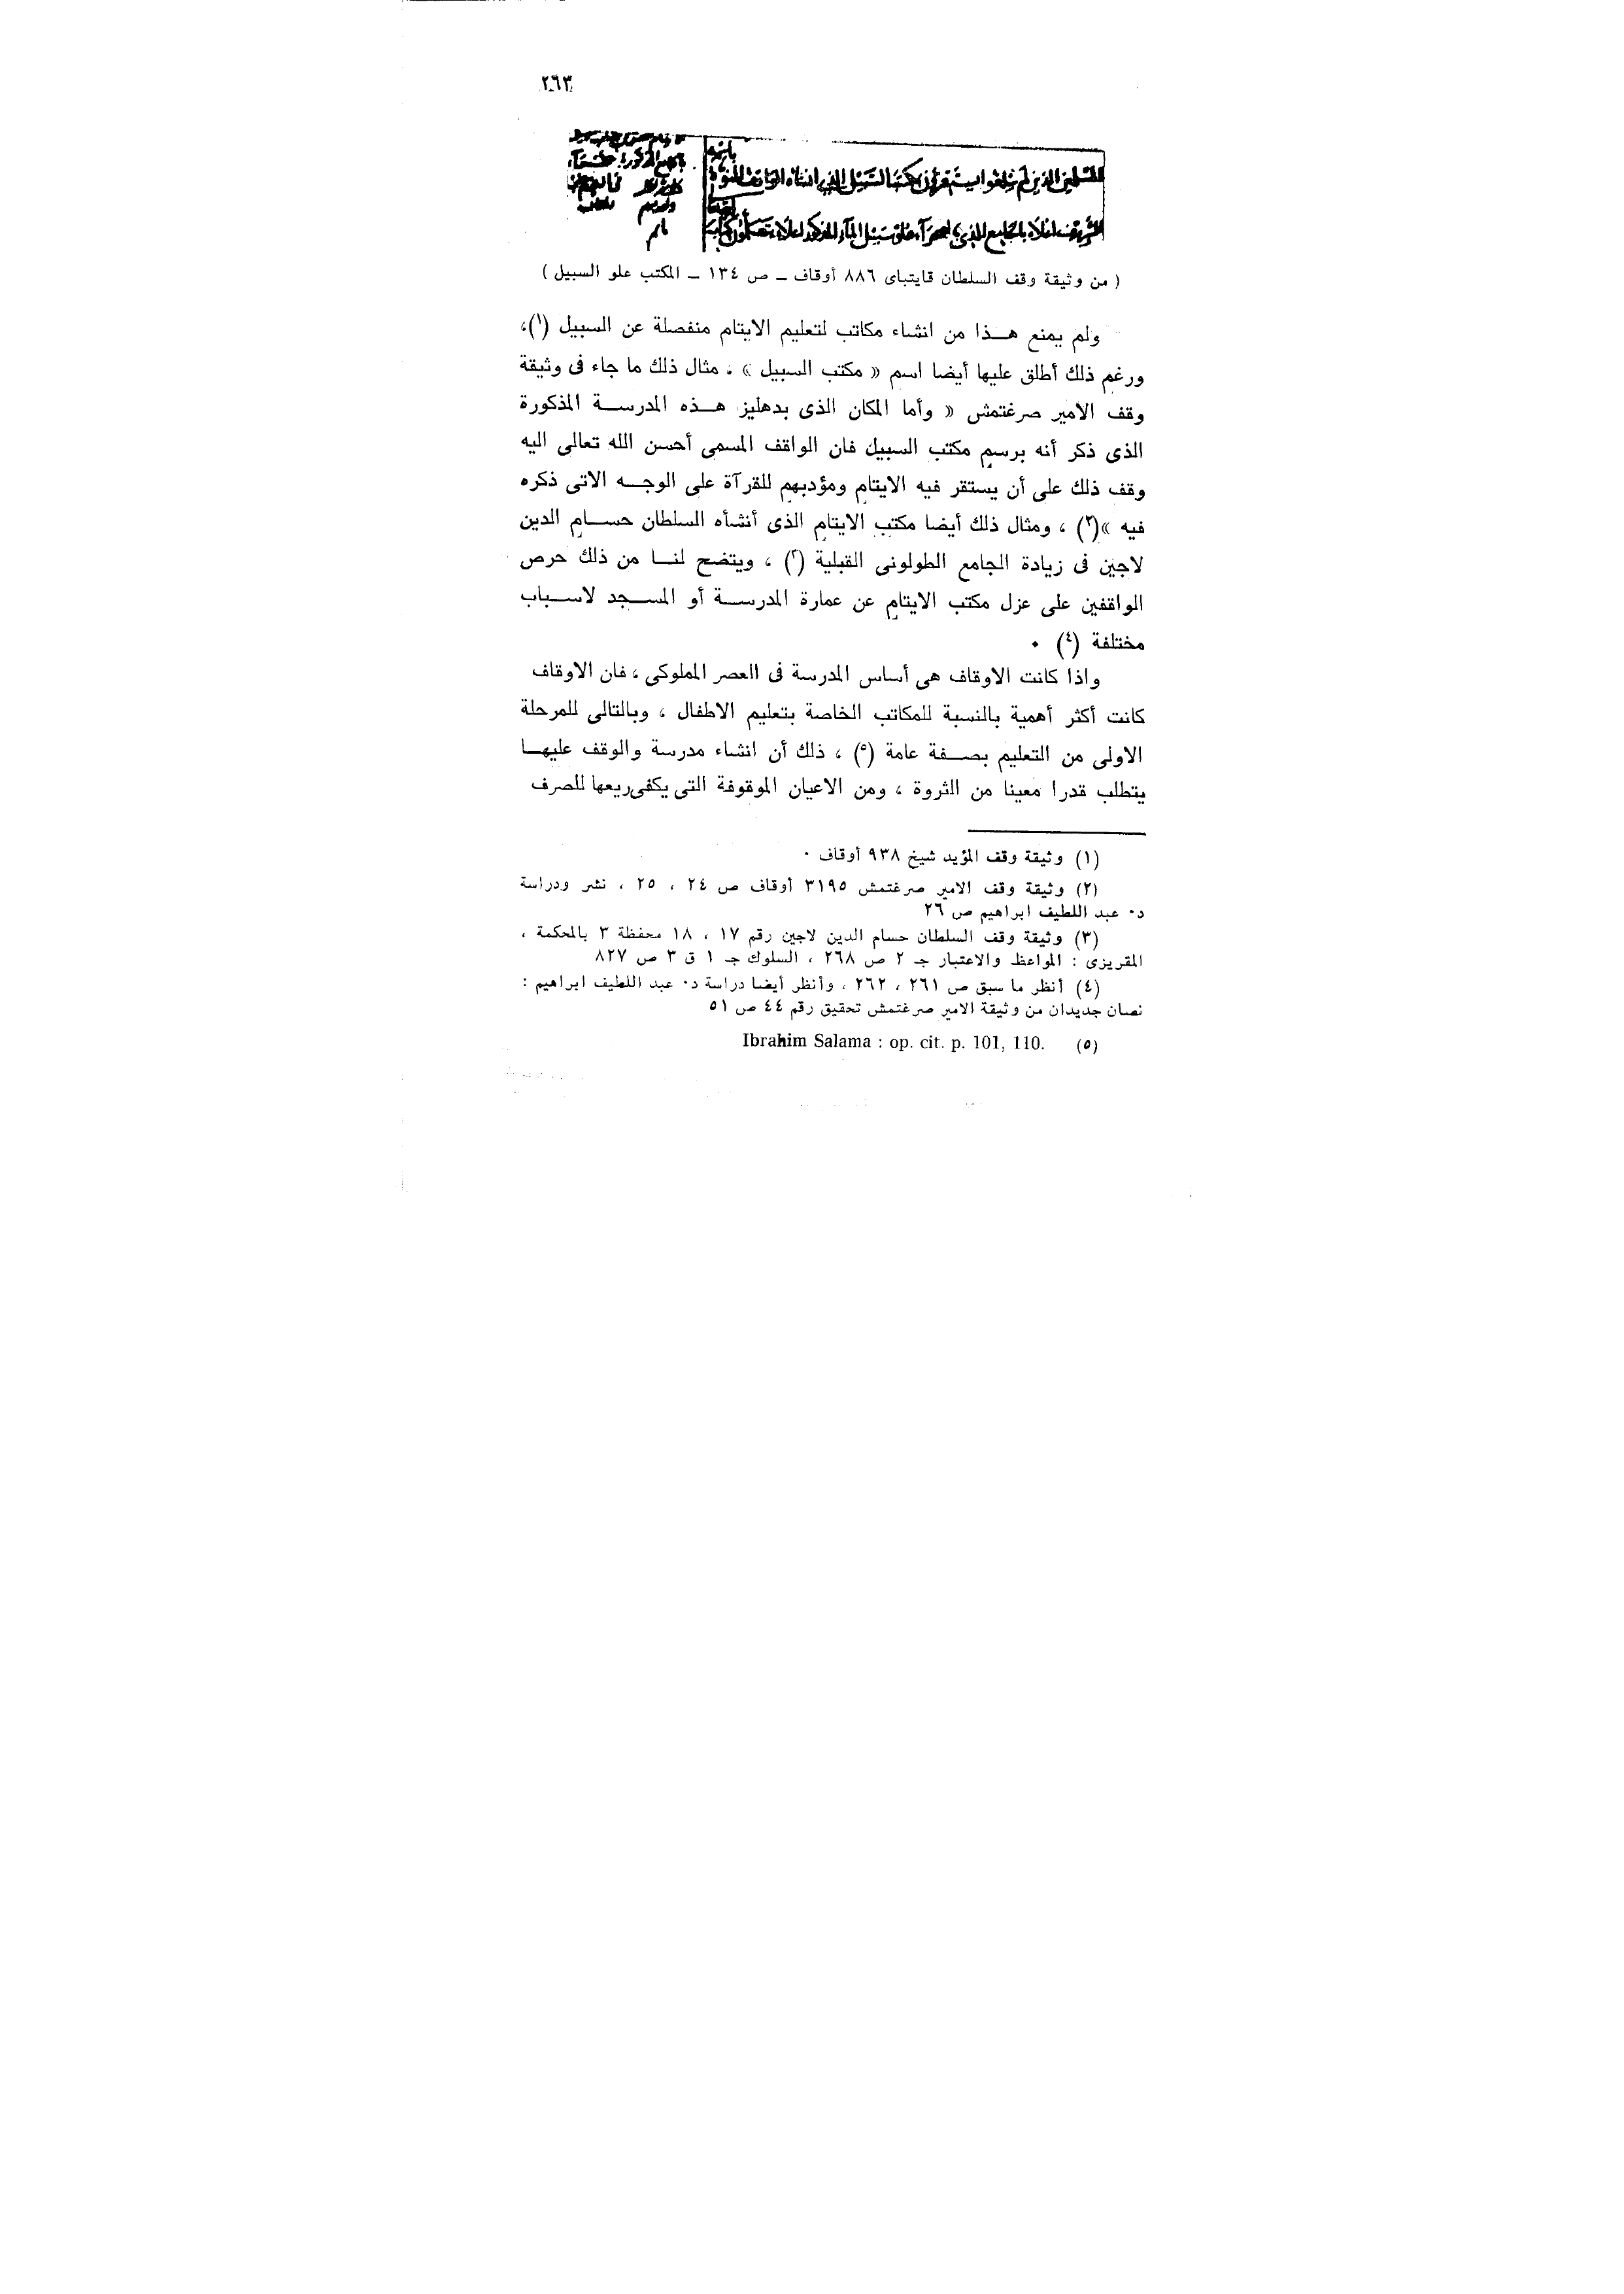 ٢٦٣
المسلمين الذين لم يبلغوا يستقرون بمكتب السبيل الذي انشاه الواقف المنوه
الشريفة اعلاه بالجامع الذي بالصحرآء علو سبيل المآء المذكور اعلاه يتعلمون كتابة
( من وثيقة وقف السلطان قايتباى ٨٨٦ أوقاف ــ ص ١٣٤ ــ المكتب علو السبيل )
ولم يمنع هــذا من انشاء مكاتب لتعليم الايتام منفصلة عن السبيل (١)،
ورغم ذلك أطلق عليها أيضا اسم « مكتب السبيل » ، مثال ذلك ما جاء فى وثيقة
وقف الامير صرغتمش « وأما المكان الذى بدهليز هــذه المدرســة المذكورة
الذى ذكر أنه برسم مكتب السبيل فان الواقف المسمى أحسن الله تعالى اليه
وقف ذلك على أن يستقر فيه الايتام ومؤدبهم للقرآة على الوجــه الاتى ذكره
فيه »(٢) ، ومثال ذلك أيضا مكتب الايتام الذى أنشأه السلطان حســام الدين
لاجين فى زيادة الجامع الطولونى القبلية (٣) ، ويتضح لنــا من ذلك حرص
الواقفين على عزل مكتب الايتام عن عمارة المدرســة أو المســجد لاســباب
مختلفة (٤) ٠
واذا كانت الاوقاف هى أساس المدرسة فى العصر المملوكى ، فان الاوقاف
كانت أكثر أهمية بالنسبة للمكاتب الخاصة بتعليم الاطفال ، وبالتالى للمرحلة
الاولى من التعليم بصــفة عامة (٥) ، ذلك أن انشاء مدرسة والوقف عليهــا
يتطلب قدرا معينا من الثروة ، ومن الاعيان الموقوفة التى يكفى ريعها للصرف
(١) وثيقة وقف المؤيد شيخ ٩٣٨ أوقاف ٠
(٢) وثيقة وقف الامير صرغتمش ٣١٩٥ أوقاف ص ٢٤ ، ٢٥ ، نشر ودراسة
د٠ عبد اللطيف ابراهيم ص ٢٦
(٣) وثيقة وقف السلطان حسام الدين لاجين رقم ١٧ ، ١٨ محفظة ٣ بالمحكمة ،
المقريزى : المواعظ والاعتبار جـ ٢ ص ٢٦٨ ، السلوك جـ ١ ق ٣ ص ٨٢٧
(٤) أنظر ما سبق ص ٢٦١ ، ٢٦٢ ، وأنظر أيضا دراسة د٠ عبد اللطيف ابراهيم :
نصان جديدان من وثيقة الامير صرغتمش تحقيق رقم ٤٤ ص ٥١
(٥) Ibrahim Salama : op. cit. p. 101, 110.